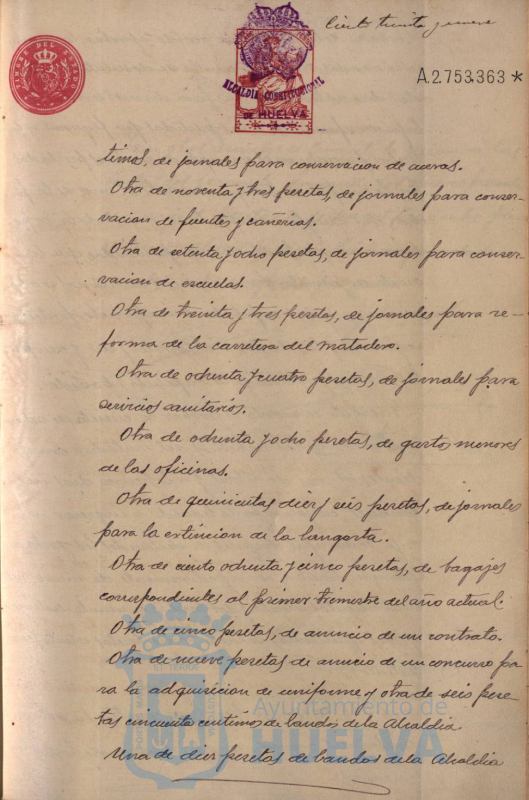 Ciento treinta y nueve
TIMBRE DEL ESTADO
ALCALDIA CONSTITUCIONAL
DE HUELVA
A.2.753.363 *
timos, de jornales para conservacion de aceras.
Otra de noventa y tres pesetas, de jornales para conser-
vacion de fuentes y cañerias.
Otra de setenta y ocho pesetas, de jornales para conser-
vacion de escuelas.
Otra de treinta y tres pesetas, de jornales para re-
forma de la carretera del Matadero.
Otra de ochenta y cuatro pesetas, de jornales para
servicios sanitarios.
Otra de ochenta y ocho pesetas, de gastos menores
de las oficinas.
Otra de quinientas diez y seis pesetas, de jornales
para la extincion de la langosta.
Otra de ciento ochenta y cinco pesetas, de bagajes
correspondientes al primer trimestre del año actual.
Otra de cinco pesetas, de anuncio de un contrato.
Otra de nueve pesetas de anuncio de un concurso pa-
ra la adquisicion de uniformes y otra de seis pese-
tas cincuenta centimos de bandos de la Alcaldia
Una de diez pesetas de bandos de la Alcaldia
Ayuntamiento de
HUELVA